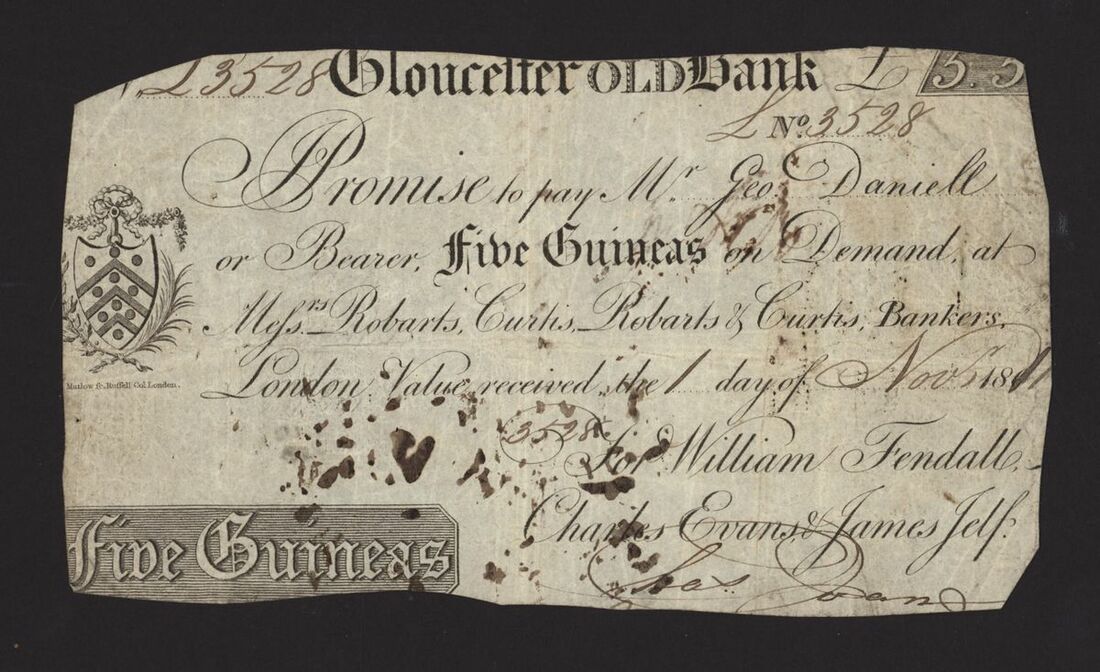 £3528 Gloucester OLD Bank £ 5.5
£ No. 3528
I Promise to pay Mr. Geo. Daniell
or Bearer, Five Guineas on Demand, at
Messrs. Robarts, Curtis, Robarts & Curtis, Bankers,
London Value received, the 1 day of Novr. 18
Mutlow sc. Russell Cot. London.
3528
For William Fendall,
Charles Evans & James Jelf.
Five Guineas
Chas. Evans